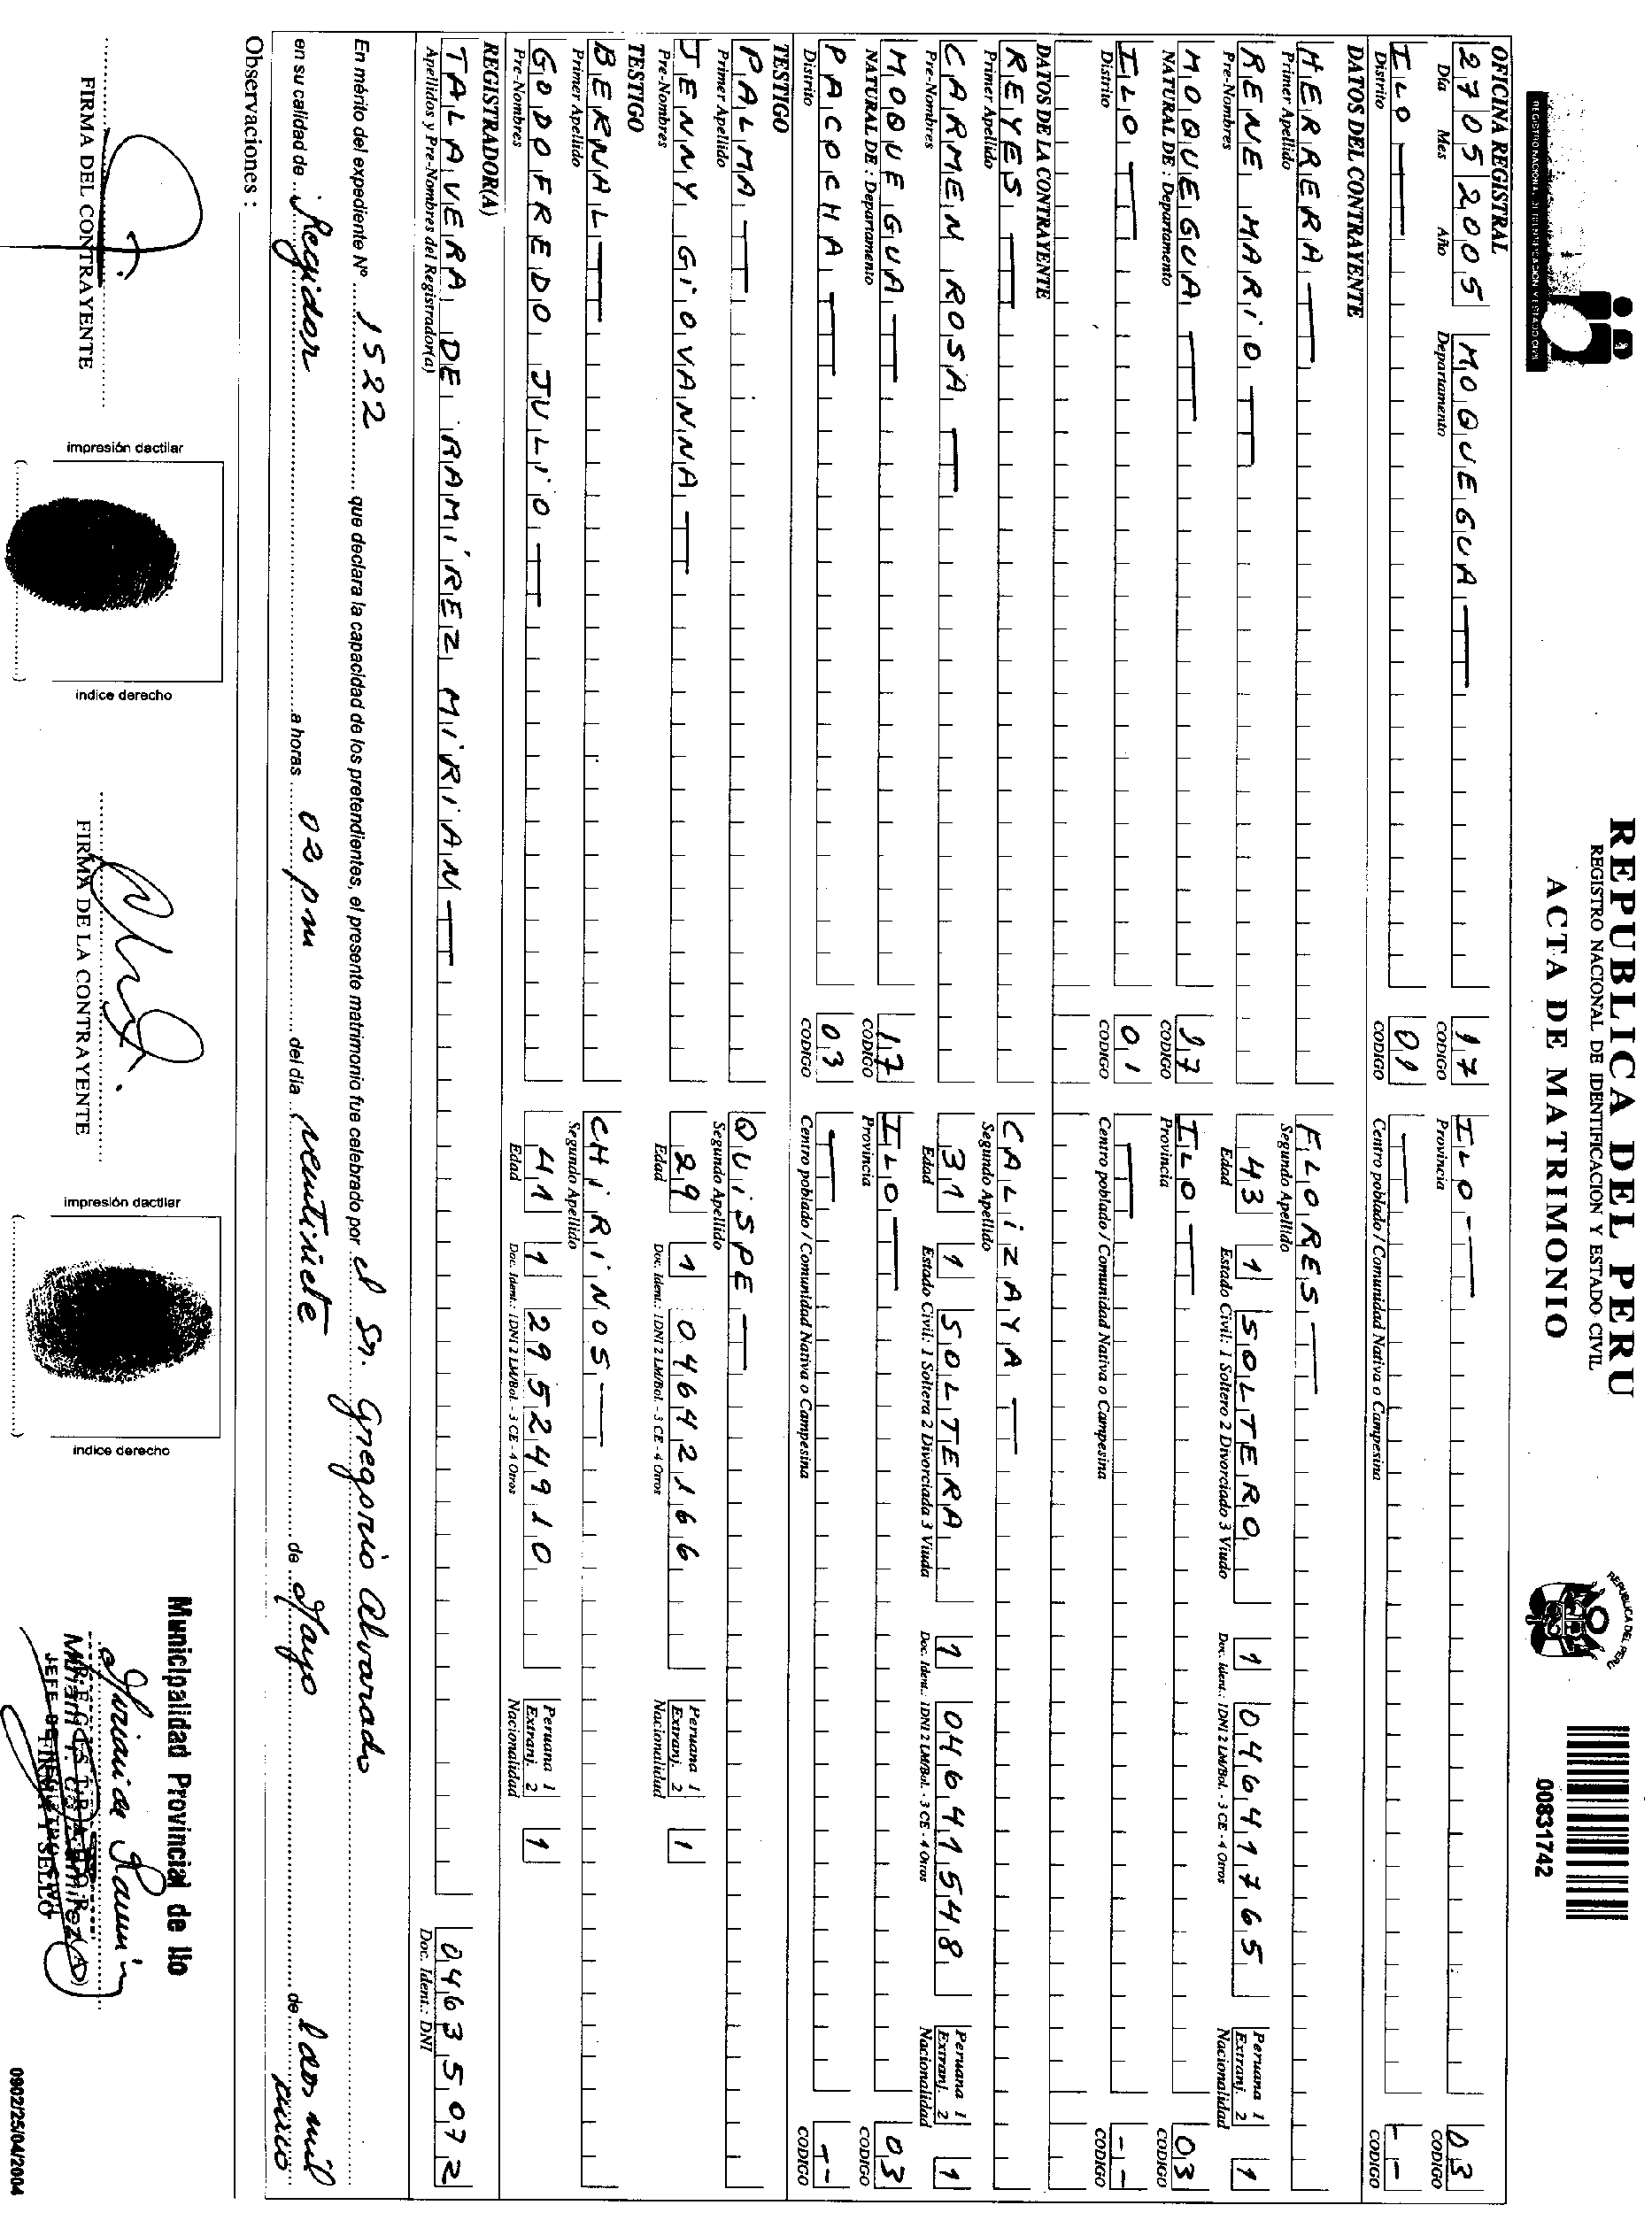 REPUBLICA DEL PERU
REGISTRO NACIONAL DE IDENTIFICACION Y ESTADO CIVIL
ACTA DE MATRIMONIO
REPUBLICA DEL PERU
00831742
OFICINA REGISTRAL
27 05 2005 MOQUEGUA 17 ILO 03
Día Mes Año Departamento CODIGO Provincia CODIGO
ILO 01 --
Distrito CODIGO Centro poblado / Comunidad Nativa o Campesina CODIGO
DATOS DEL CONTRAYENTE
HERRERA FLORES
Primer Apellido Segundo Apellido
RENE MARIO 43 1 SOLTERO 1 04641765 Peruana 1 Extranj. 2 1
Pre-Nombres Edad Estado Civil: 1 Soltero 2 Divorciado 3 Viudo Doc. Ident.: 1DNI 2 LM/Bol. - 3 CE - 4 Otros Nacionalidad
MOQUEGUA 17 ILO 03
NATURAL DE : Departamento CODIGO Provincia CODIGO
ILO 01 --
Distrito CODIGO Centro poblado / Comunidad Nativa o Campesina CODIGO
DATOS DE LA CONTRAYENTE
REYES CALIZAYA
Primer Apellido Segundo Apellido
CARMEN ROSA 31 1 SOLTERA 1 04641548 Peruana 1 Extranj. 2 1
Pre-Nombres Edad Estado Civil: 1 Soltera 2 Divorciada 3 Viuda Doc. Ident.: 1DNI 2 LM/Bol. - 3 CE - 4 Otros Nacionalidad
MOQUEGUA 17 ILO 03
NATURAL DE : Departamento CODIGO Provincia CODIGO
PACOCHA 03 --
Distrito CODIGO Centro poblado / Comunidad Nativa o Campesina CODIGO
TESTIGO
PALMA QUISPE
Primer Apellido Segundo Apellido
JENNY GIOVANNA 29 1 04642166 Peruana 1 Extranj. 2 1
Pre-Nombres Edad Doc. Ident.: 1DNI 2 LM/Bol. - 3 CE - 4 Otros Nacionalidad
TESTIGO
BERNAL CHIRINOS
Primer Apellido Segundo Apellido
GODOFREDO JULIO 41 1 29524910 Peruana 1 Extranj. 2 1
Pre-Nombres Edad Doc. Ident.: 1DNI 2 LM/Bol. - 3 CE - 4 Otros Nacionalidad
REGISTRADOR(A)
TALAVERA DE RAMIREZ MIRIAN 04635072
Apellidos y Pre-Nombres del Registrador(a) Doc. Ident.: DNI
En mérito del expediente Nº 1522 que declara la capacidad de los pretendientes, el presente matrimonio fue celebrado por el Sr. Gregorio Alvarado
en su calidad de Regidor a horas 02 pm del día veintisiete de Mayo de dos mil cinco
Observaciones :
FIRMA DEL CONTRAYENTE
impresión dactilar
indice derecho
FIRMA DE LA CONTRAYENTE
impresión dactilar
indice derecho
Municipalidad Provincial de Ilo
0902/25/04/2004